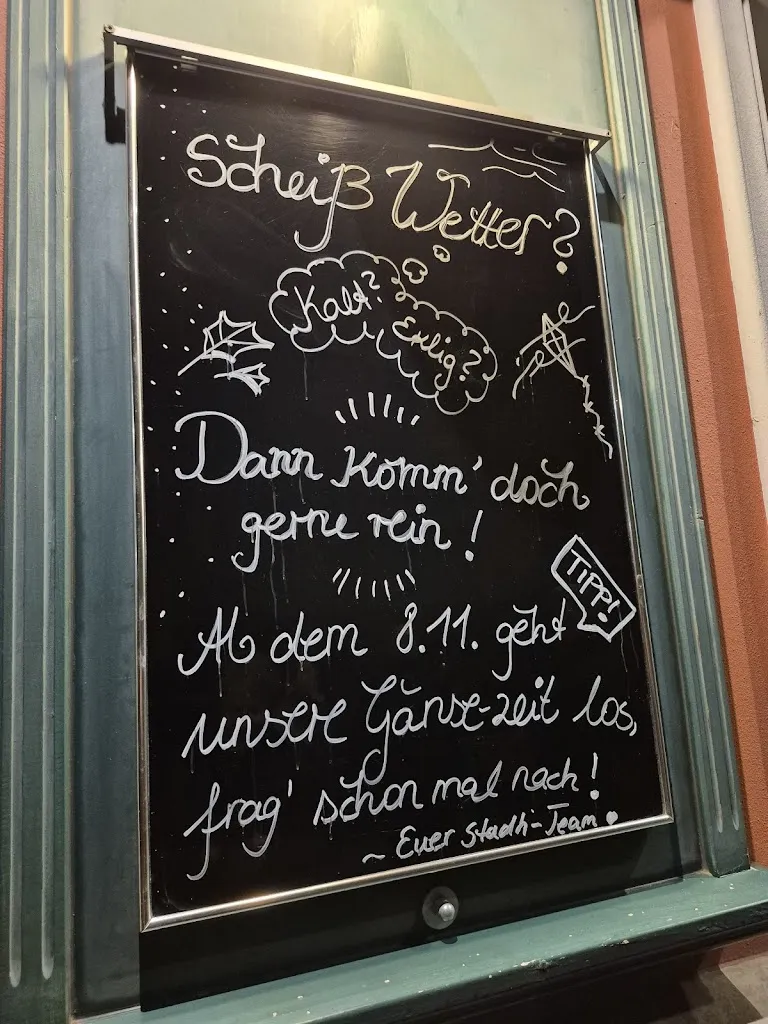 Scheiß Wetter?
Kalt?
Eklig?
Dann Komm' doch
gerne rein!
TIPP!
Ab dem 8.11. geht
unsere Gänse-zeit los,
frag' schon mal nach!
~ Euer Stadti-Team